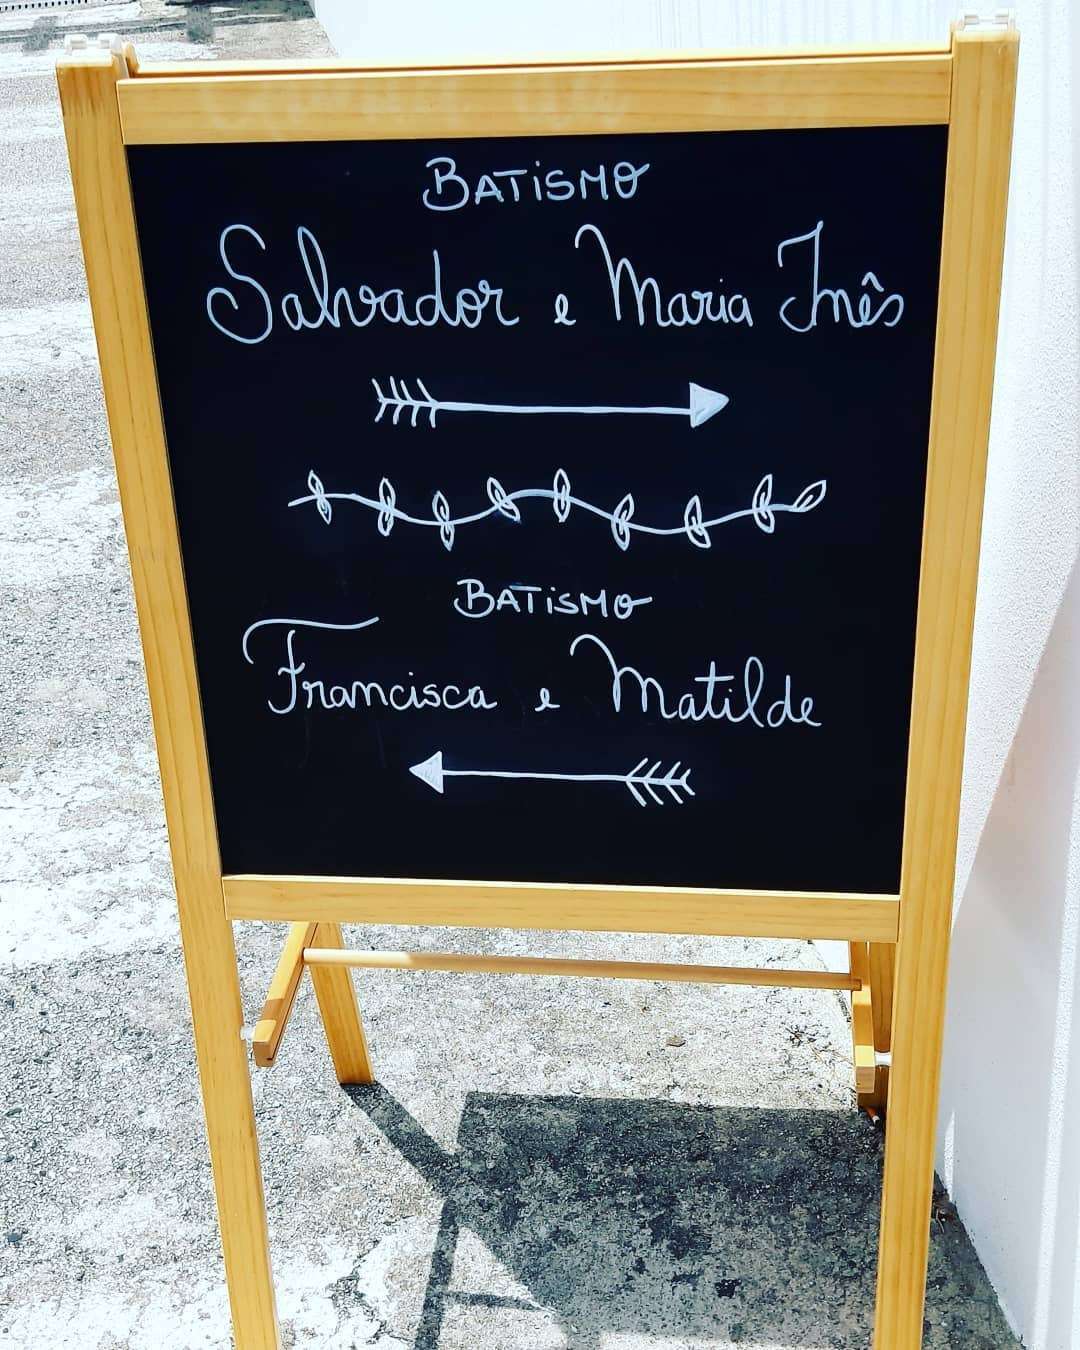 BATiSMO
Salvador e Maria Inês
BATiSMO
Francisca e Matilde